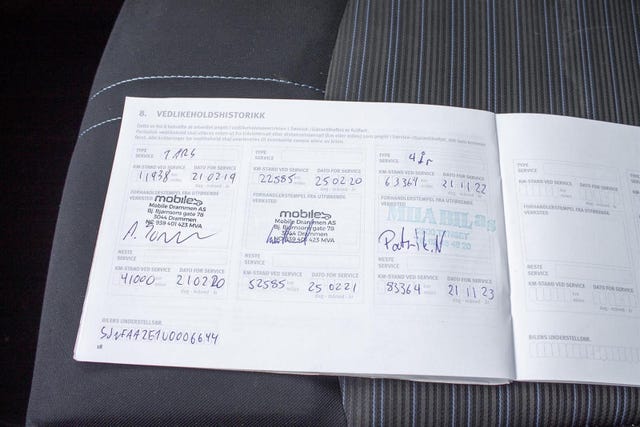 8. VEDLIKEHOLDSHISTORIKK
TYPE SERVICE 1 ÅRS
KM-STAND VED SERVICE DATO FOR SERVICE
11938 21 02 19
FORHANDLERSTEMPEL FRA UTFØRENDE VERKSTED
mobile
Mobile Drammen AS
Bj. Bjørnsons gate 78
3044 Drammen
NE 939 401 423 MVA
NESTE SERVICE
KM-STAND VED SERVICE DATO FOR SERVICE
41000 21 02 20
TYPE SERVICE
KM-STAND VED SERVICE DATO FOR SERVICE
22585 25 02 20
FORHANDLERSTEMPEL FRA UTFØRENDE VERKSTED
mobile
Mobile Drammen AS
Bj. Bjørnsons gate 78
3044 Drammen
NESTE SERVICE
KM-STAND VED SERVICE DATO FOR SERVICE
52585 25 02 21
TYPE SERVICE 4 år
KM-STAND VED SERVICE DATO FOR SERVICE
63364 21 11 22
FORHANDLERSTEMPEL FRA UTFØRENDE VERKSTED
Patrik.N
NESTE SERVICE
KM-STAND VED SERVICE DATO FOR SERVICE
83364 21 11 23
BILENS UNDERSTELLSNR.
SJNFAAZE1U0006644
TYPE SERVICE
KM-STAND VED SERVICE DATO FOR SERVICE
FORHANDLERSTEMPEL FRA UTFØRENDE VERKSTED
NESTE SERVICE
KM-STAND VED SERVICE DATO FOR
BILENS UNDERSTELLSNR.